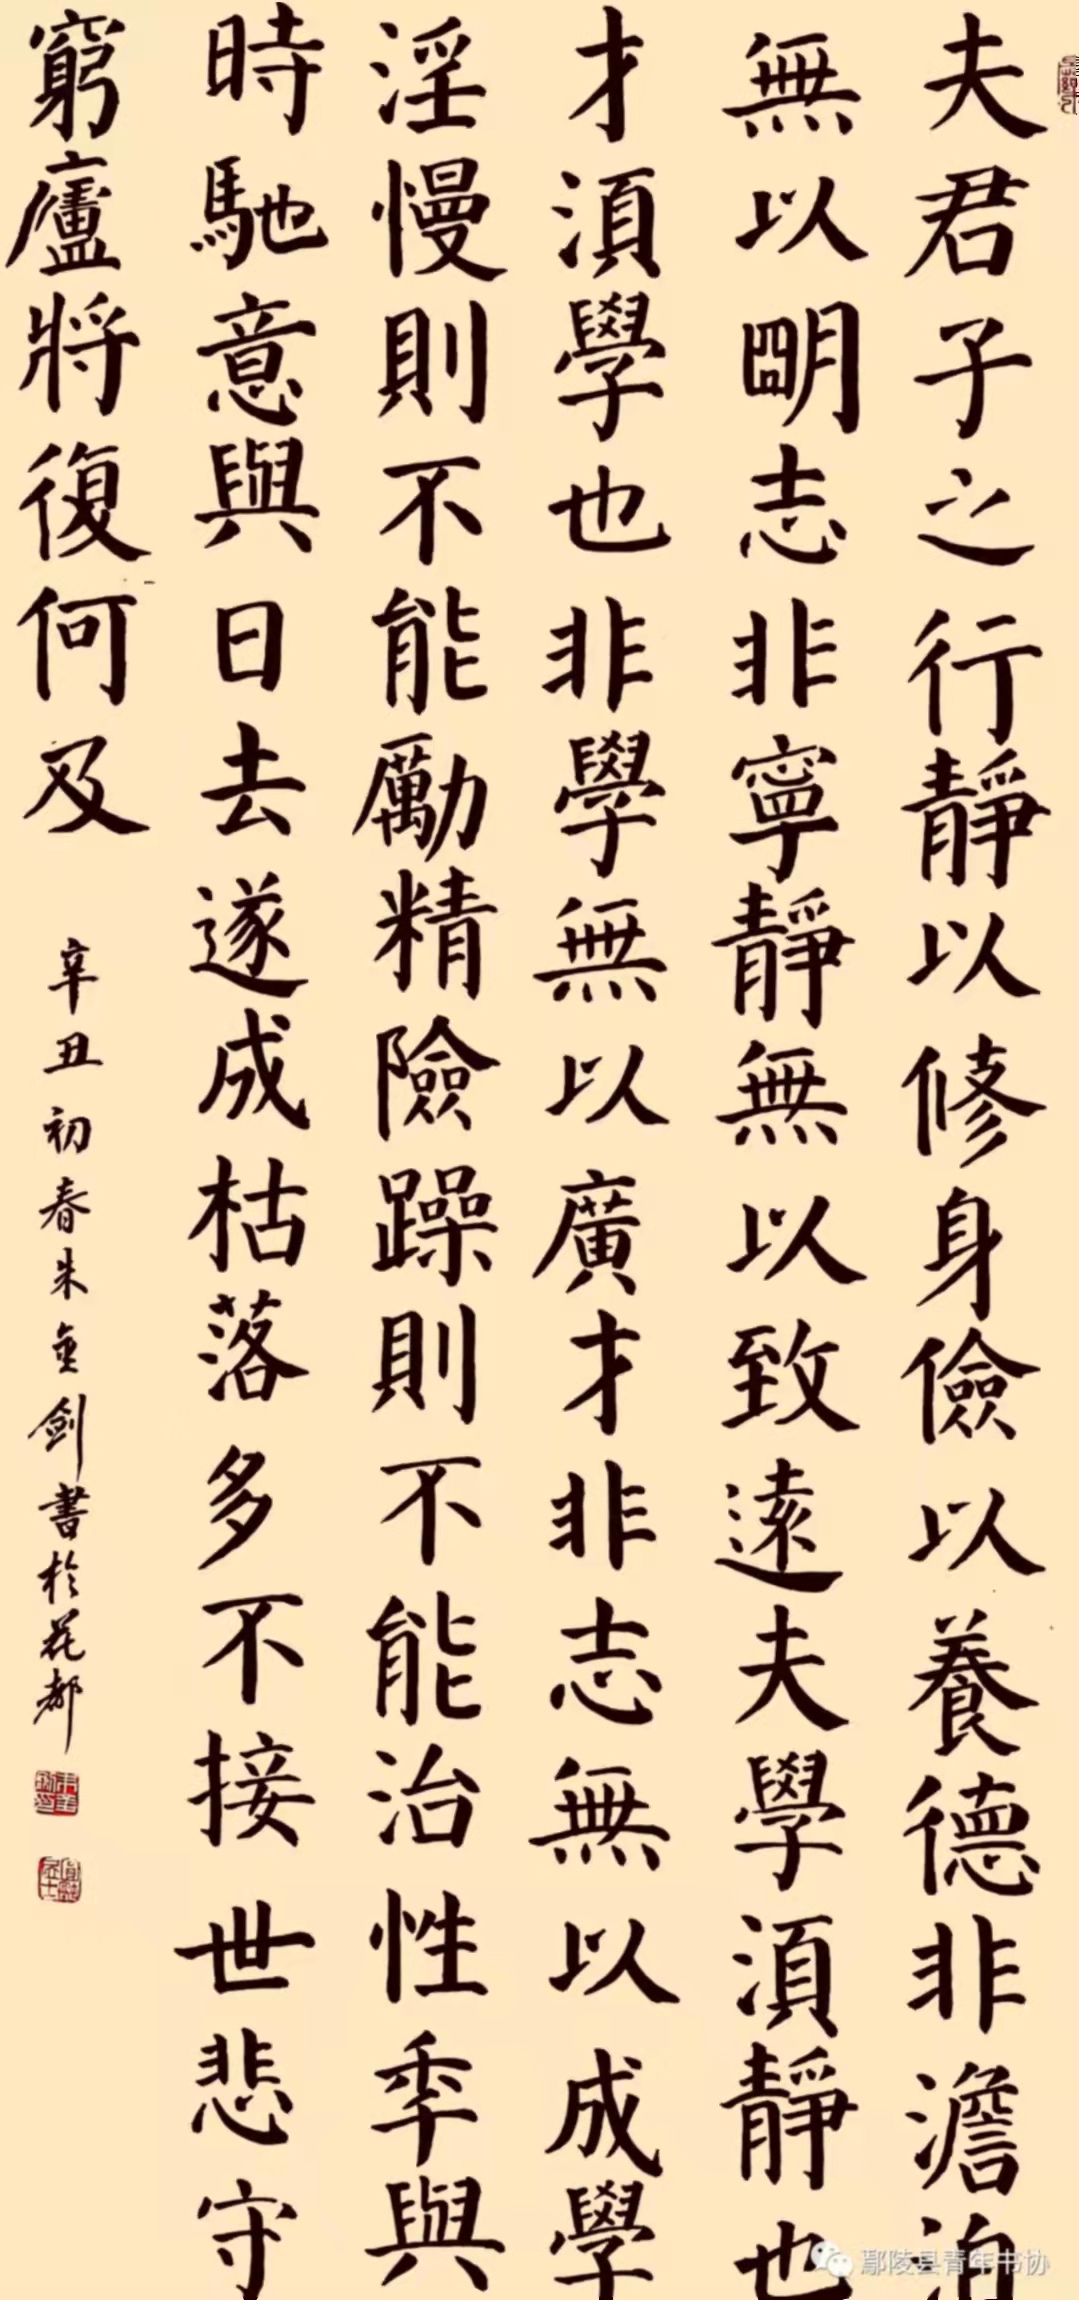 夫君子之行靜以修身儉以養德非澹泊
無以明志非寧靜無以致遠夫學須靜也
才須學也非學無以廣才非志無以成學
淫慢則不能勵精險躁則不能治性年與
時馳意與日去遂成枯落多不接世悲守
窮廬將復何及
辛丑初春朱金剑書於花都
鄢陵县青年书协